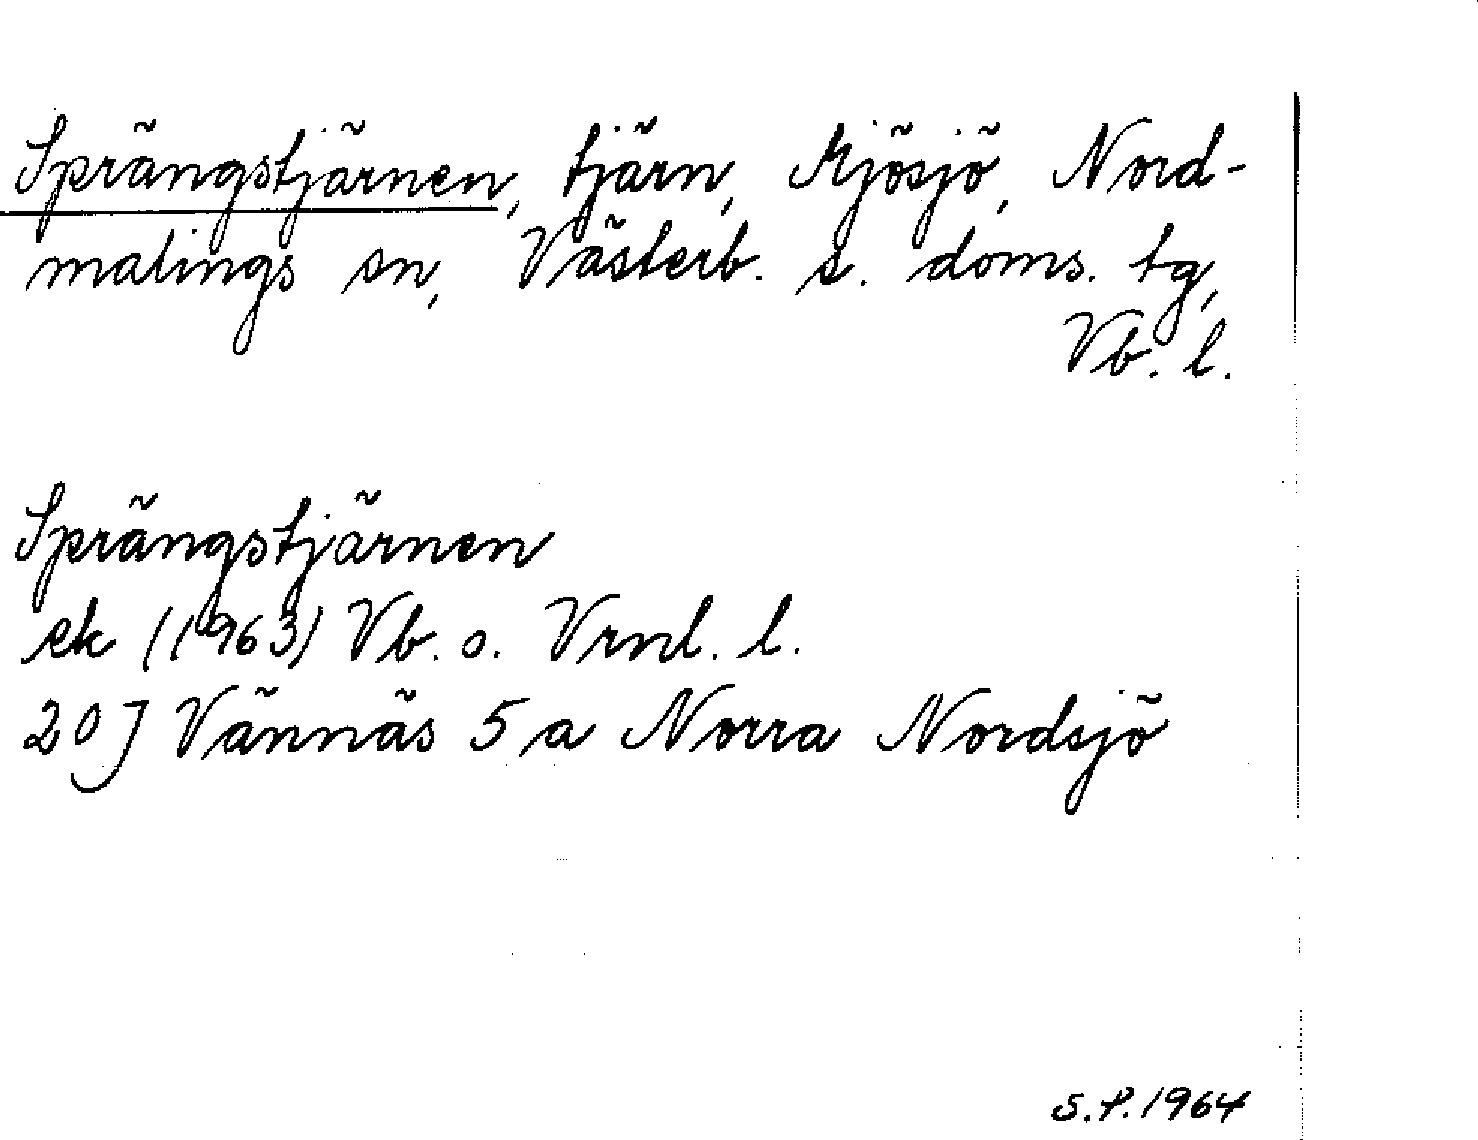 Sprängstjärnen, tjärn, Mjösjö, Nord-
malings sn, Västerb. s. doms. tg,
Vb. l.
Sprängstjärnen
ek (1963) Vb. o. Vrnl. l.
20 J Vännäs 5 a Norra Nordsjö
S.P. 1964